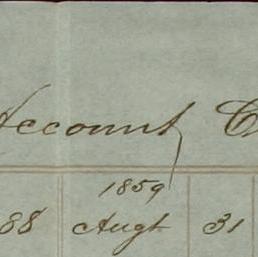 Account C
1859
88 Augt 31